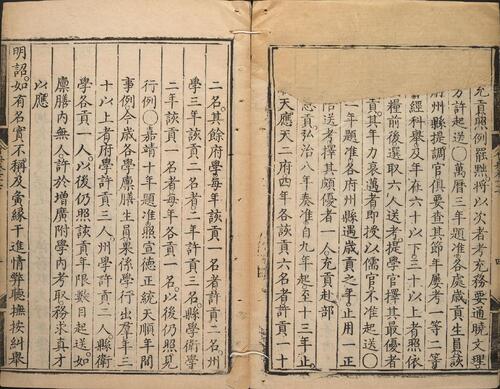 充貢照例罷黜將以次者考充務要通曉文理
方許起送○萬曆三年題准各處歲貢生員該
府州縣提調官俱要查其節年屢考一等二等
經科舉及年在六十以下三十以上者照依
糧前後選取六人送考提學官擇其最優者
貢其年力衰邁者即授以儒官不准起送○
一年題准各府州縣遇歲貢之年止用一正
送考擇其頗優者一人充貢赴部
恩貢弘治八年奏准自九年起至十三年止
天應天二府四年各該貢六名者許貢一十
二名其餘府學每年該貢一名者許貢二名州
學三年該貢二名者二年許貢三名縣學衛學
二年該貢一名者每年各貢一名以後仍照見
行例○嘉靖十年題准照宣德正統天順年間
事例今歲各學廩膳生員果係學行出羣年三
十以上者府學許貢三人州學許貢二人縣衛
學各貢一人以後仍照該貢年限數目起送如
廩膳內無人許於增廣附學內考取務求真才
以應
明詔如有名實不稱及夤緣干進情弊聽撫按糾舉